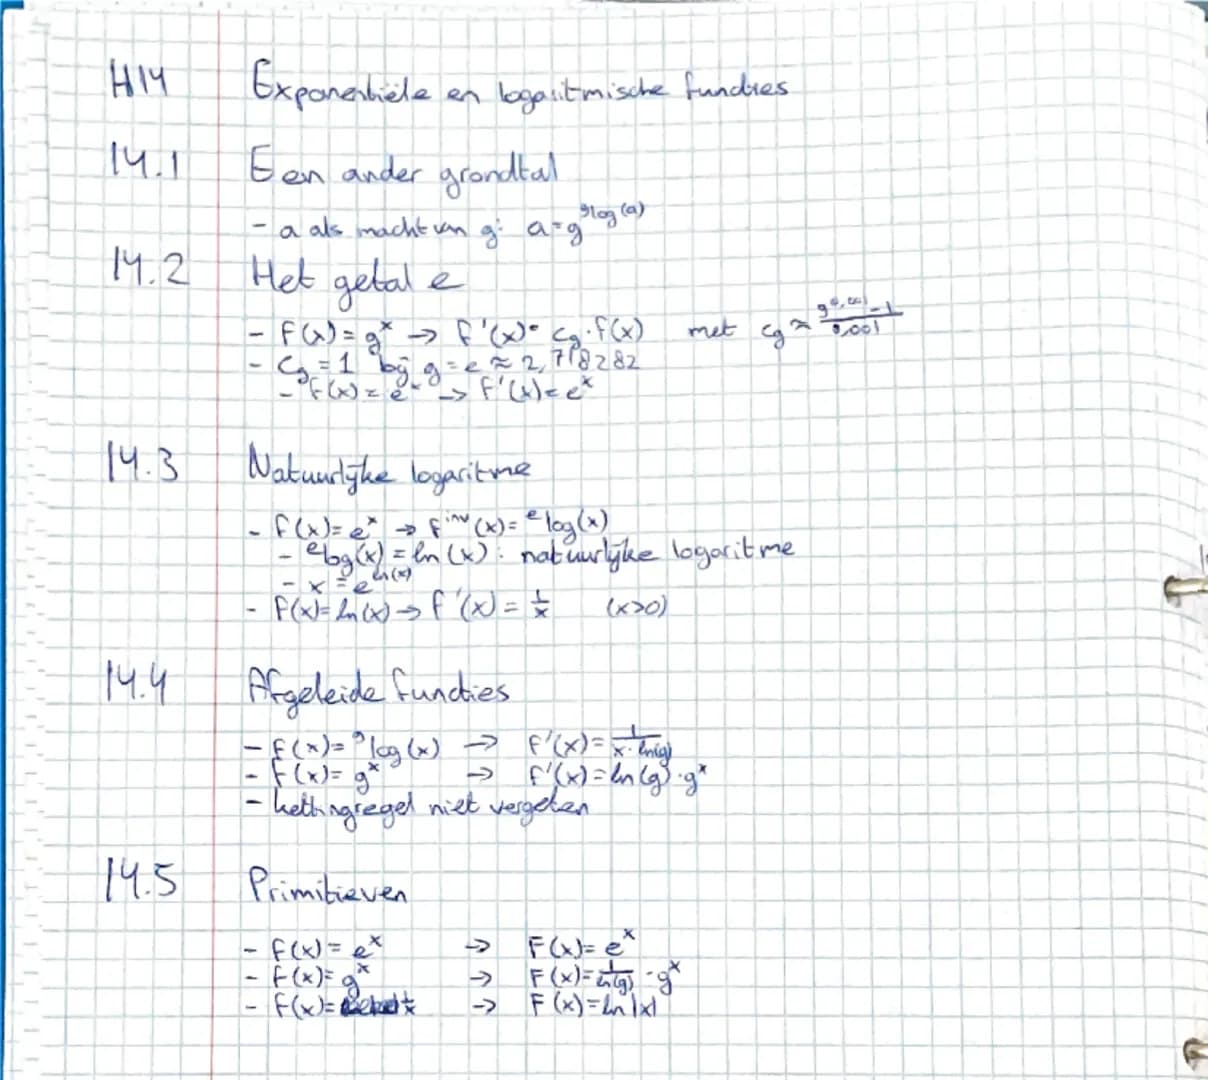 H14 Exponentiële en logaritmische functies
14.1 Een ander grondtal
- a als macht van g: a = g^(ᵍlog(a))
14.2 Het getal e
- f(x) = gˣ → f'(x) = c_g · f(x) met c_g ≈ (g^0,001 - 1)/0,001
- c_g = 1 bij g = e ≈ 2,718282
- f(x) = eˣ → f'(x) = eˣ
14.3 Natuurlijke logaritme
- f(x) = eˣ → f^inv(x) = ᵉlog(x)
- ᵉlog(x) = ln(x): natuurlijke logaritme
- x = e^ln(x)
- f(x) = ln(x) → f'(x) = 1/x (x>0)
14.4 Afgeleide functies
- f(x) = ᵍlog(x) → f'(x) = 1/(x · ln(g))
- f(x) = gˣ → f'(x) = ln(g) · gˣ
- kettingregel niet vergeten
14.5 Primitieven
- f(x) = eˣ → F(x) = eˣ
- f(x) = gˣ → F(x) = 1/ln(g) · gˣ
- f(x) = 1/x → F(x) = ln|x|